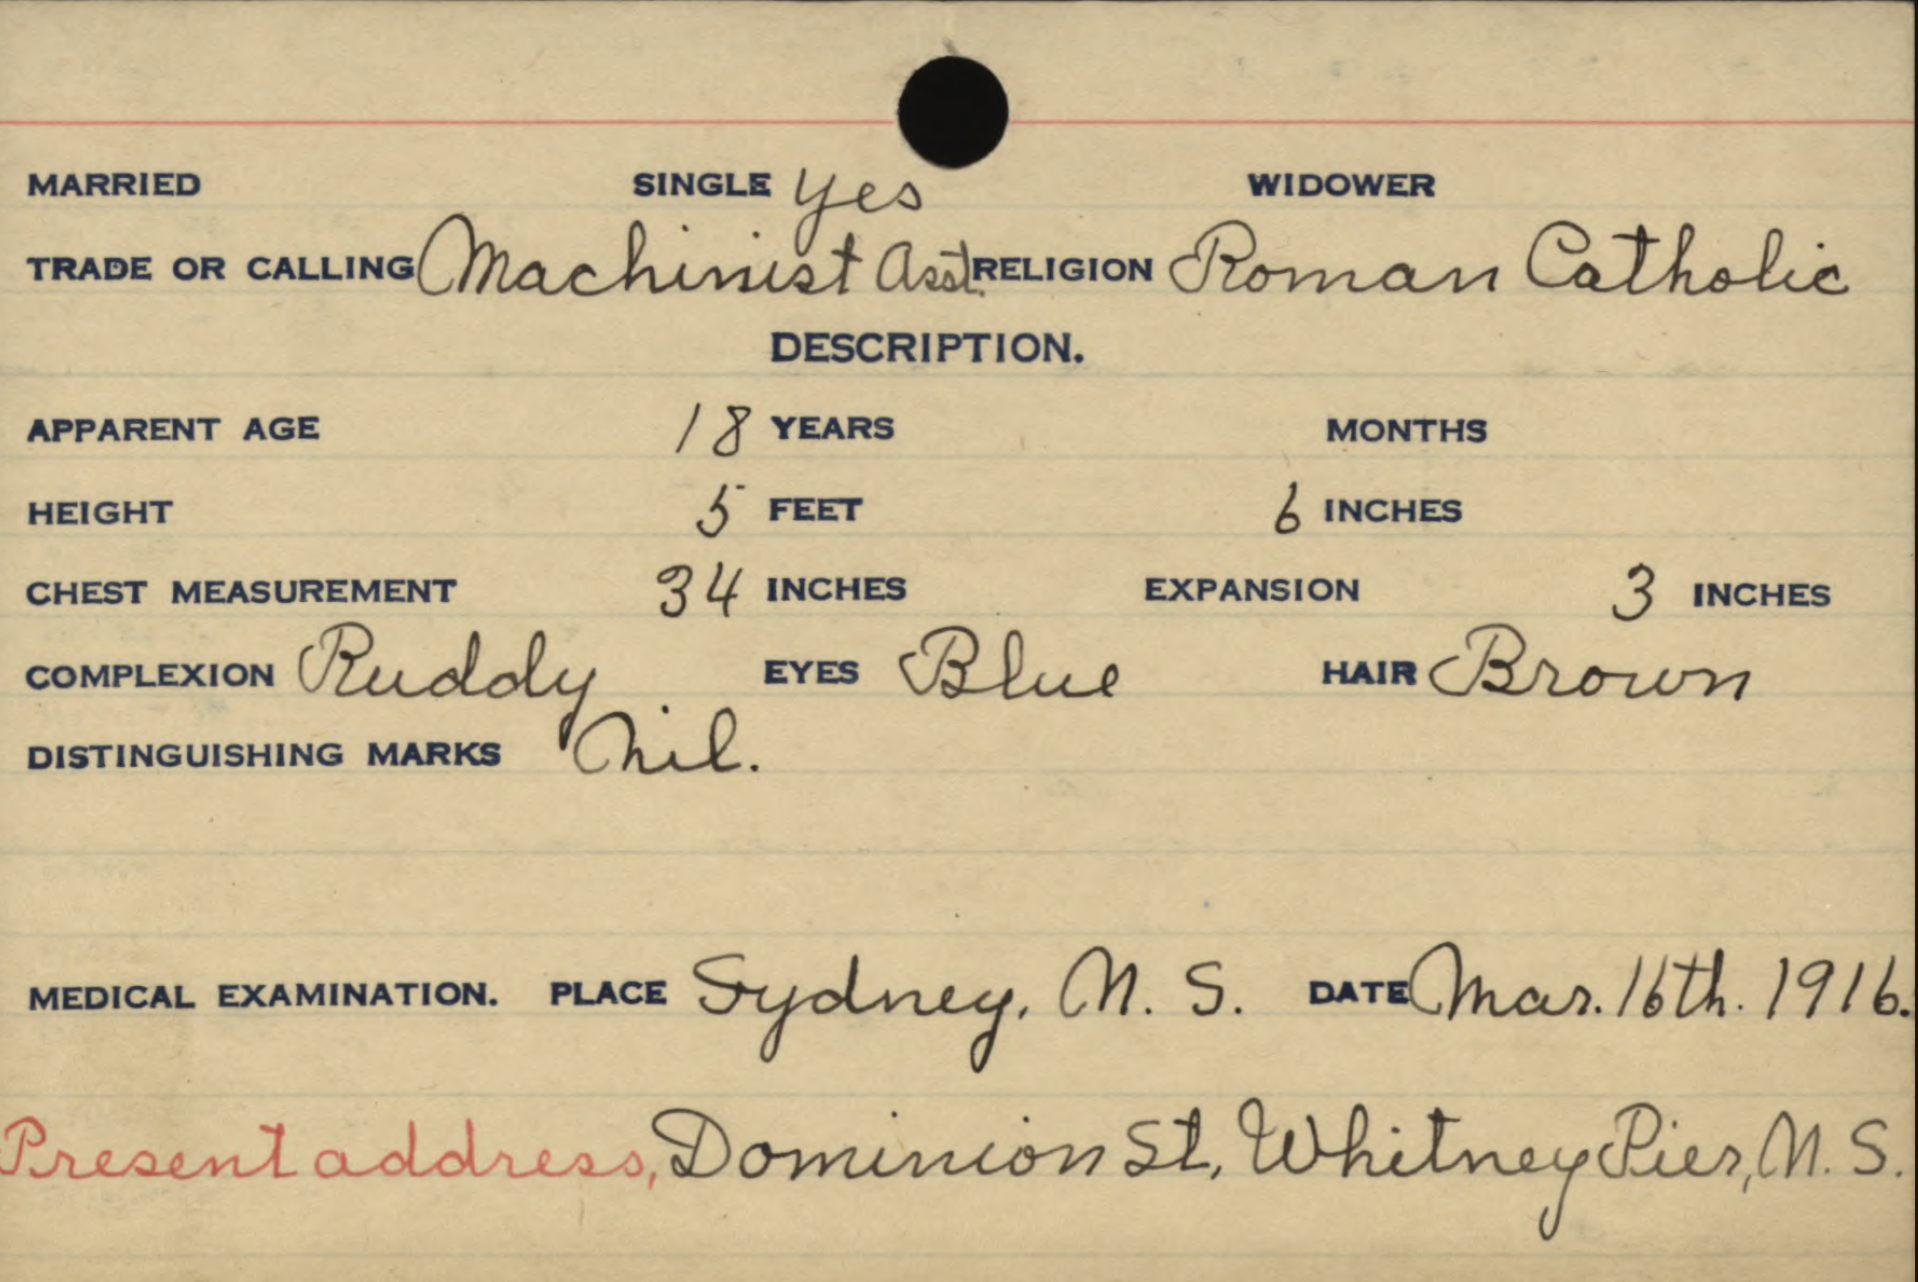 MARRIED SINGLE Yes WIDOWER
TRADE OR CALLING Machinist Asst. RELIGION Roman Catholic
DESCRIPTION.
APPARENT AGE 18 YEARS MONTHS
HEIGHT 5 FEET 6 INCHES
CHEST MEASUREMENT 34 INCHES EXPANSION 3 INCHES
COMPLEXION Ruddy EYES Blue HAIR Brown
DISTINGUISHING MARKS Nil.
MEDICAL EXAMINATION. PLACE Sydney, N. S. DATE Mar. 16th. 1916.
Present address, Dominion St, Whitney Pier, N. S.